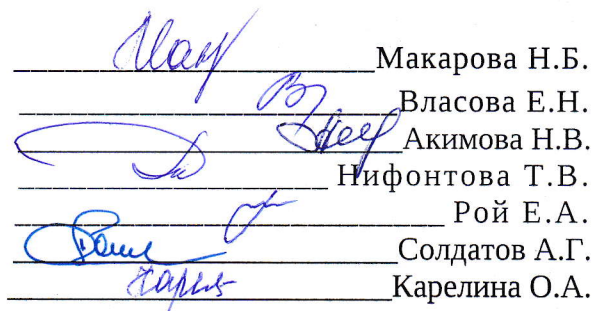 Макарова Н.Б.
Власова Е.Н.
Акимова Н.В.
Нифонтова Т.В.
Рой Е.А.
Солдатов А.Г.
Карелина О.А.